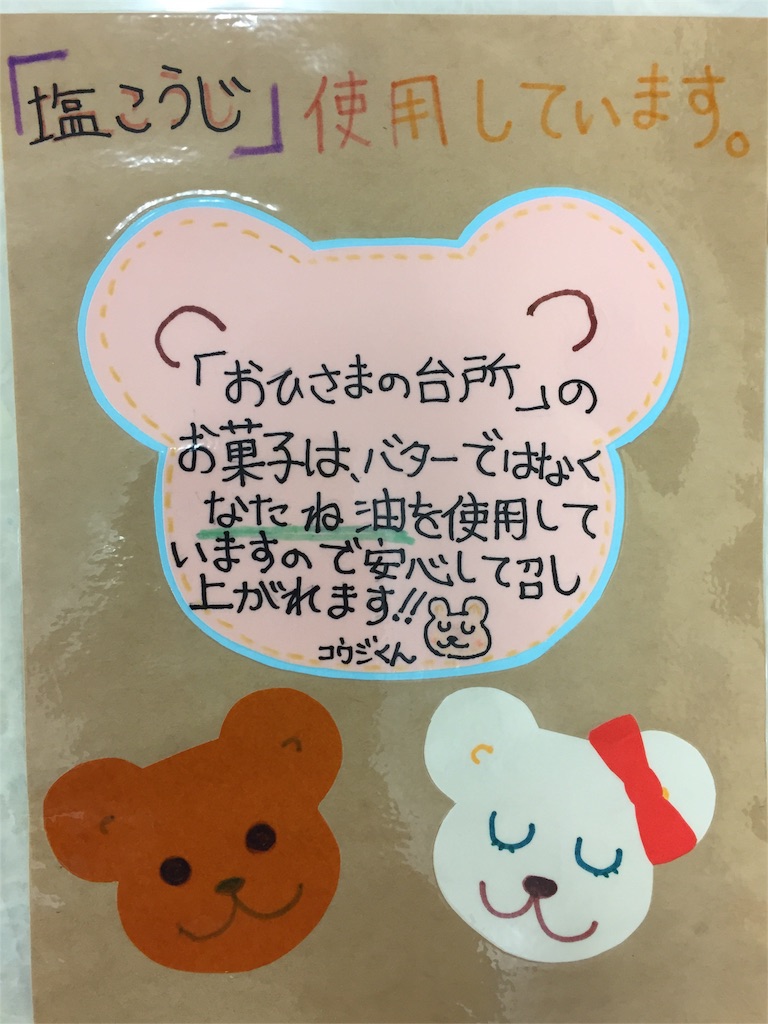 「塩こうじ」使用しています。
「おひさまの台所」の
お菓子は、バターではなく
なたね油を使用して
いますので安心して召し
上がれます!!
コウジくん